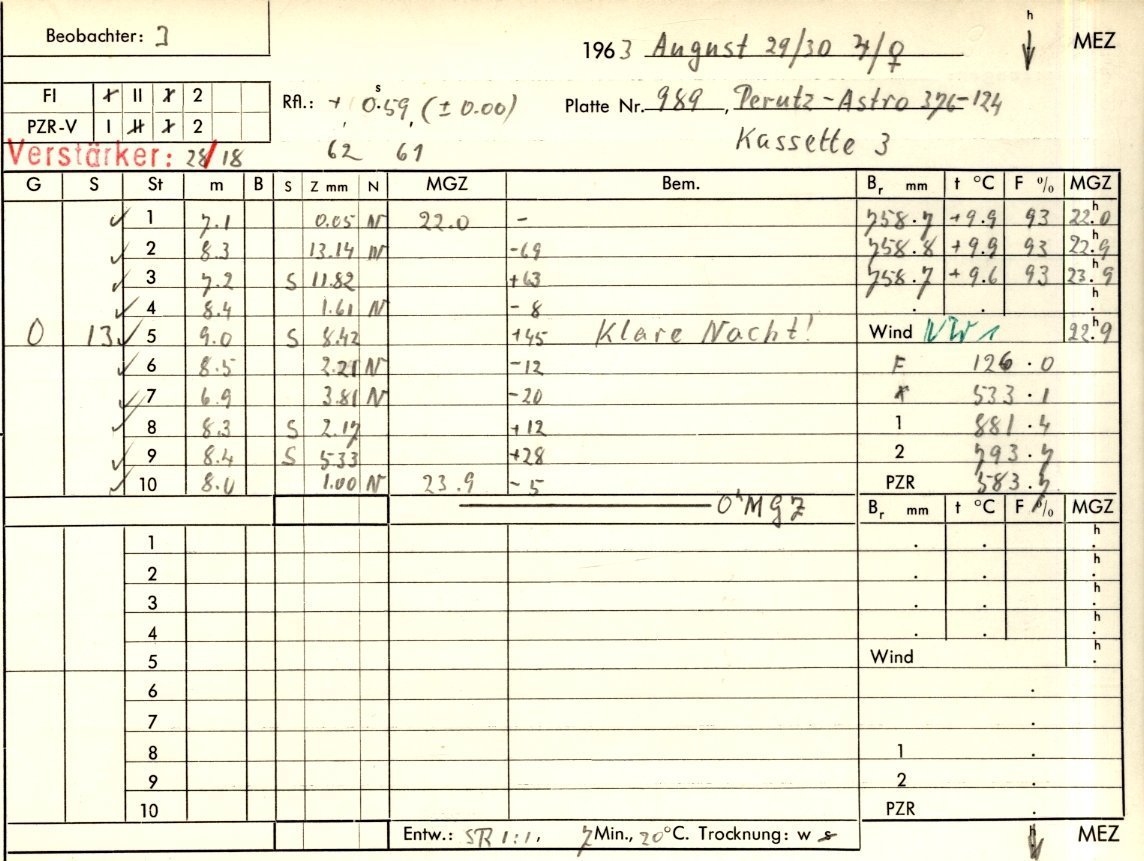 Beobachter: J
1963 August 29/30 ♃/♀ h MEZ
FI I II 1 2
PZR-V I II 1 2
Rfl.: + 0.s59, (± 0.00)
62 61
Platte Nr. 989, Perutz-Astro 376-124
Kassette 3
Verstärker: 28/18
G S St m B S Z mm N MGZ Bem. Br mm t °C F % MGZ
✓ 1 7.1 0.05 N 22.0 - 758.7 +9.9 93 22.h0
✓ 2 8.3 13.14 N -69 758.8 +9.9 93 22.h9
✓ 3 7.2 S 11.82 +63 758.7 +9.6 93 23.h9
✓ 4 8.4 1.61 N -8 . . h.
0 13 ✓ 5 9.0 S 8.42 +45 Klare Nacht! Wind NW 1 22.h9
✓ 6 8.5 2.21 N -12 F 126.0
✓ 7 6.9 3.81 N -20 533.1
✓ 8 8.3 S 2.17 +12 1 881.4
✓ 9 8.4 S 5.33 +28 2 793.7
✓ 10 8.0 1.00 N 23.9 -5 PZR 583.7
0h MGZ Br mm t °C F % MGZ
1 . . h.
2 . . h.
3 . . h.
4 . . h.
5 Wind h.
6 .
7 .
8 1 .
9 2 .
10 PZR .
Entw.: 1:1, 7 Min., 20°C. Trocknung: w s h MEZ